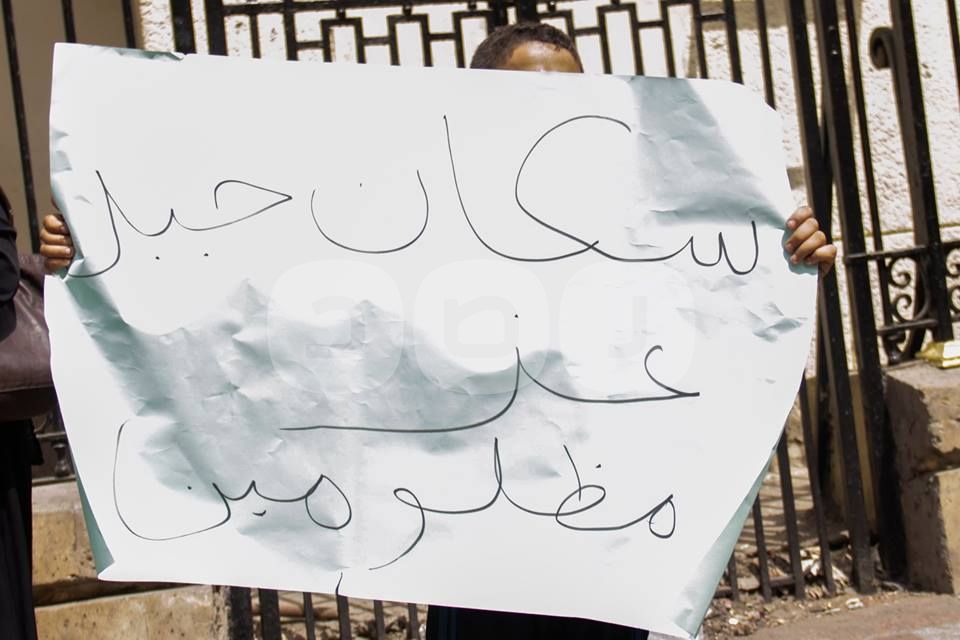 سكان جبل
عز
مظلومين